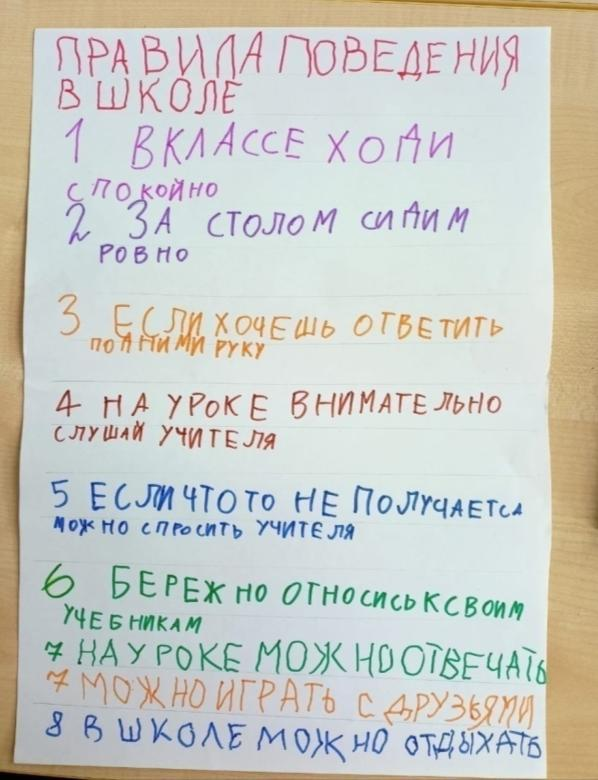 ПРАВИЛА ПОВЕДЕНИЯ
В ШКОЛЕ
1 В КЛАССЕ ХОДИ
СПОКОЙНО
2 ЗА СТОЛОМ СИДИМ
РОВНО
3 ЕСЛИ ХОЧЕШЬ ОТВЕТИТЬ
ПОДНИМИ РУКУ
4 НА УРОКЕ ВНИМАТЕЛЬНО
СЛУШАЙ УЧИТЕЛЯ
5 ЕСЛИ ЧТО ТО НЕ ПОЛУЧАЕТСА
МОЖНО СПРОСИТЬ УЧИТЕЛЯ
6 БЕРЕЖНО ОТНОСИСЬ К СВОИМ
УЧЕБНИКАМ
7 НА УРОКЕ МОЖНО ОТВЕЧАТЬ
7 МОЖНО ИГРАТЬ С ДРУЗЬЯМИ
8 В ШКОЛЕ МОЖНО ОТДЫХАТЬ